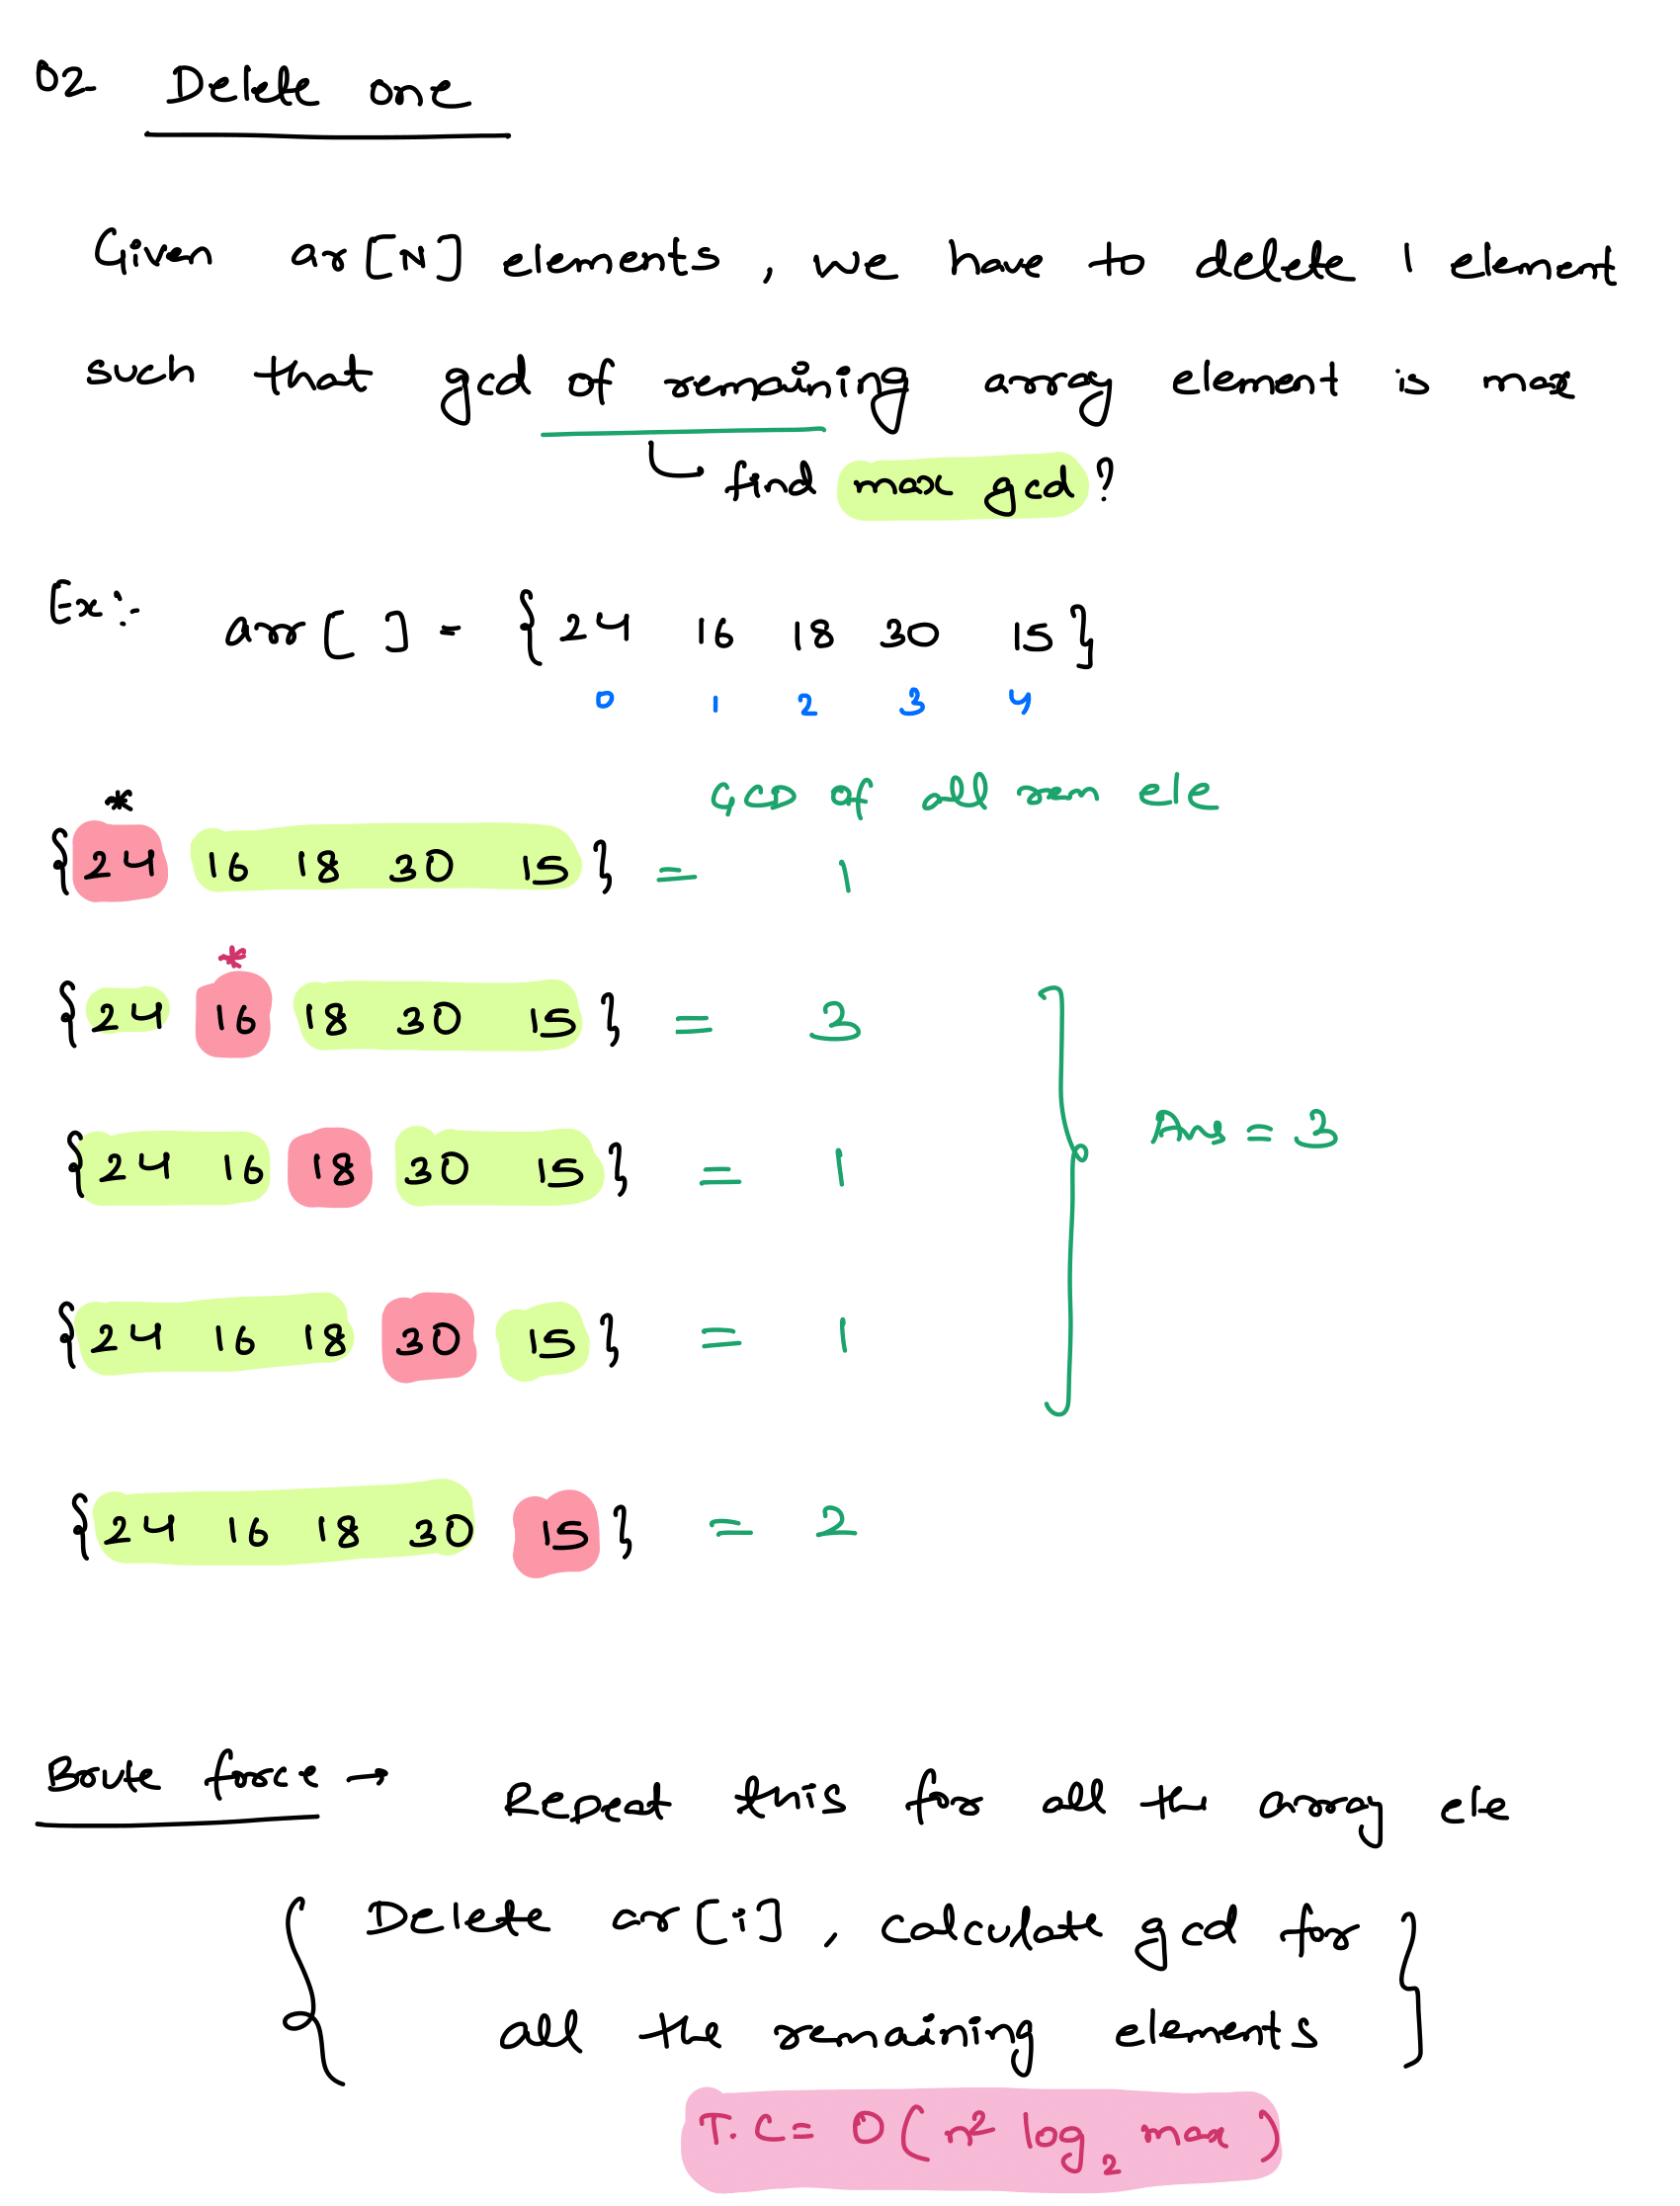 02 Delete one
Given ar[N] elements, we have to delete 1 element
such that gcd of remaining array element is max
find max gcd?
Ex:- arr[ ] = {24 16 18 30 15}
0 1 2 3 4
GCD of all rem ele
*
{24 16 18 30 15} = 1
*
{24 16 18 30 15} = 3
Ans = 3
{24 16 18 30 15} = 1
{24 16 18 30 15} = 1
{24 16 18 30 15} = 2
Brute force → Repeat this for all the array ele
{ Delete ar[i], calculate gcd for
all the remaining elements }
T.C = O(n² log₂ max)